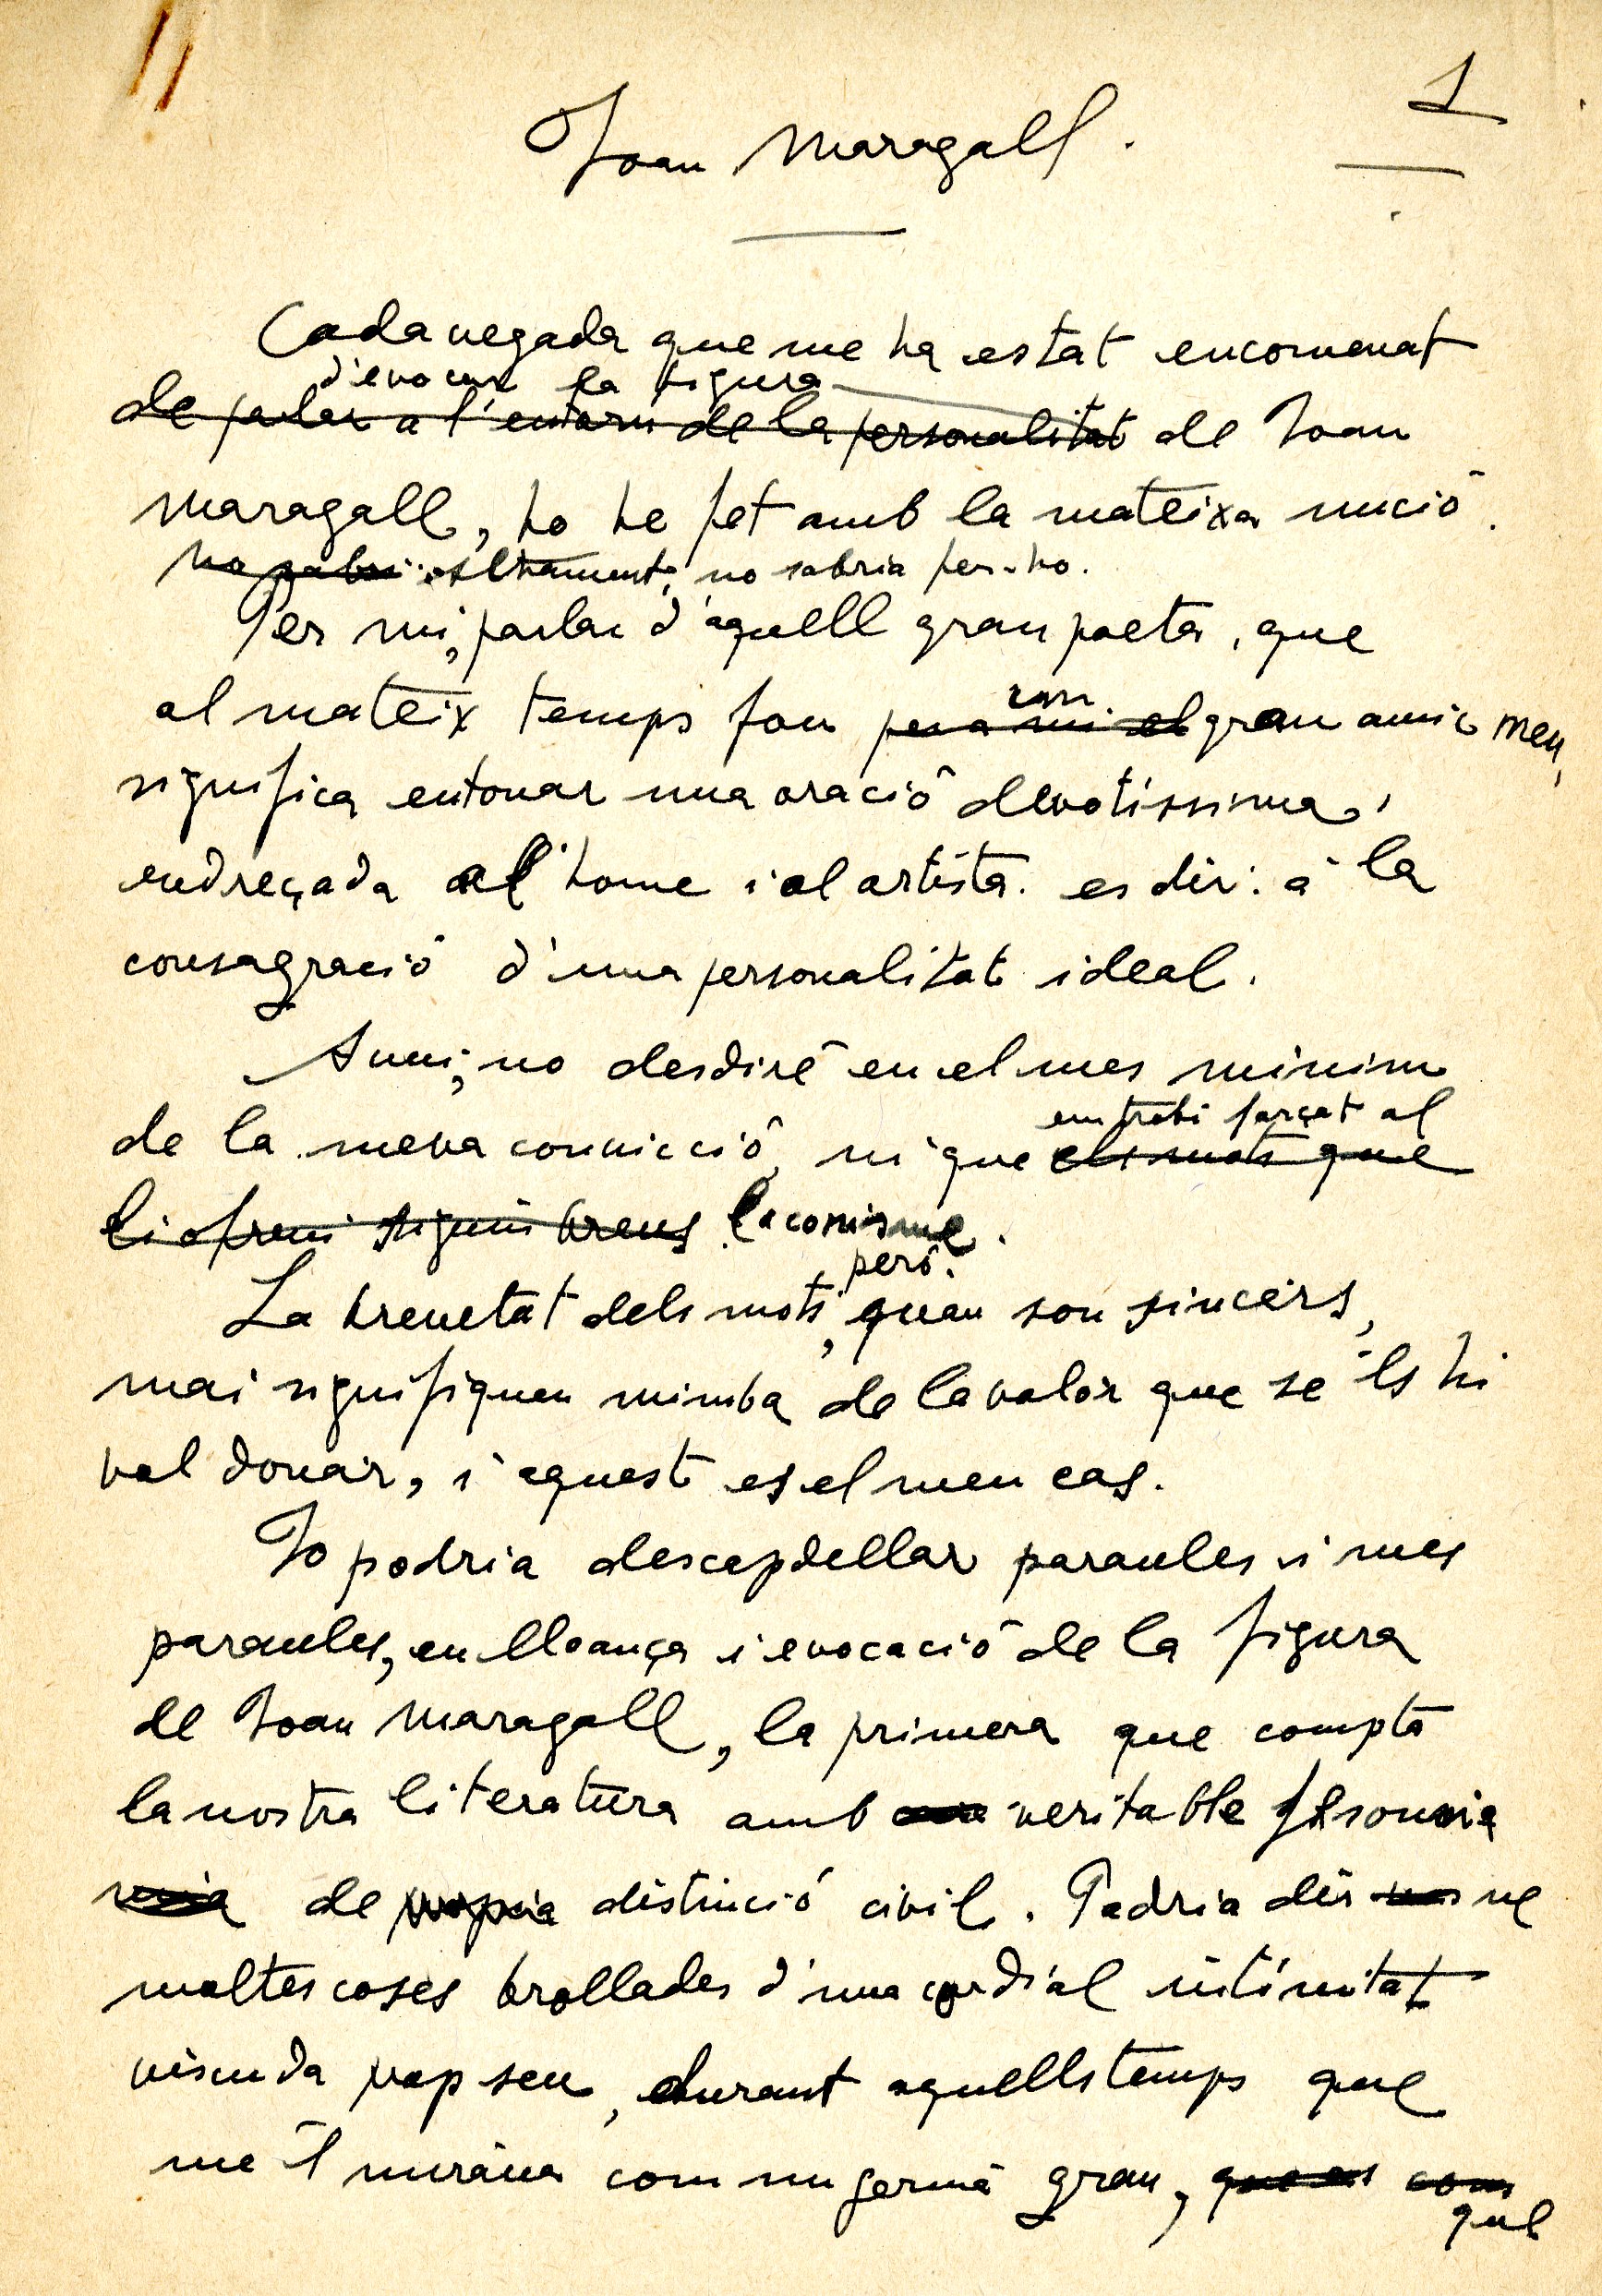 1
Joan Maragall.
Cada vegada que me ha estat encomenat
d'evocar la figura
de parlar a l'entorn de la personalitat de Joan
Maragall, ho he fet amb la mateixa unció.
altrament, no sabria fer-ho.
Per mi, parlar d'aquell gran poeta, que
al mateix temps fou per a mi el gran amic meu,
significa entonar una oració devotíssima,
endreçada al home i al artista. es dir: a la
consagració d'una personalitat ideal.
Avui, no desdiré en el mes minim
em trobi forçat al
de la meva convicció, ni que els mots que
li ofreni siguin breus laconisme.
però.
La brevetat dels mots, quan son sincers,
mai signifiquen minvba de la valor que se 'ls hi
vol donar, i aquest es el meu cas.
Jo podria descapdellar paraules i mes
paraules, en lloança i evocació de la figura
de Joan Maragall, la primera que compta
la nostra literatura amb veritable fesomia
de propia distinció civil. Podria dir ne
moltes coses brollades d'una cordial intimitat
viscuda prop seu, durant aquells temps que
me 'l mirava com un germà gran, que es com
que